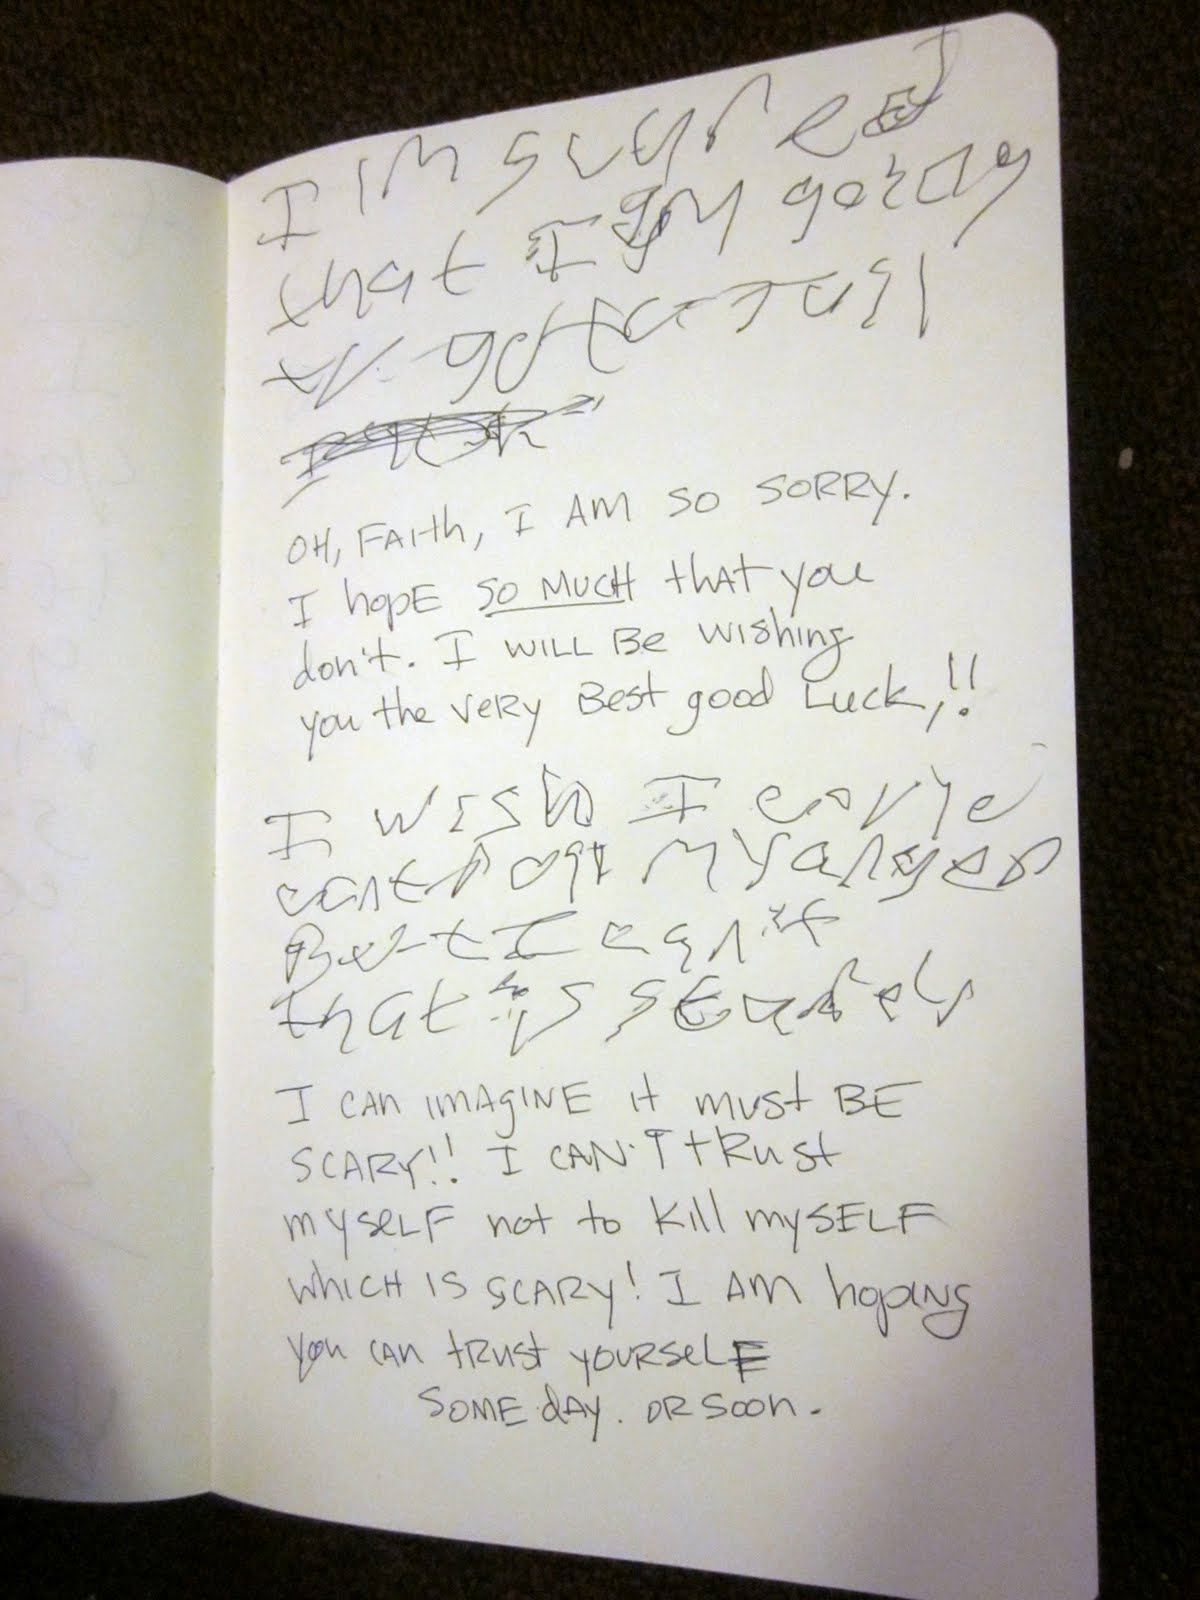 I im scared
that I am going
to go to jail
OH, FAith, I AM SO SORRY.
I hopE SO MUCH thAt you
don't. I WILL Be wishing
you the very Best good Luck,!!
I wish I
my anger
But I can't
that is
I CAN IMAgINE it must BE
SCARY!! I CAN'T tRust
myseLF not to Kill mySELF
which IS SCARY! I AM hoping
you can tRust youRselF
SOME dAy. OR soon.